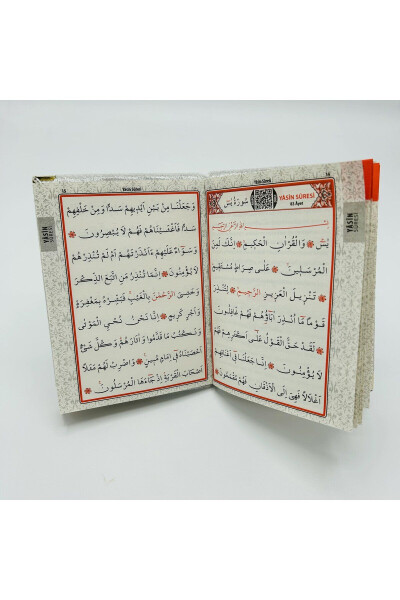 14
Yâsin Sûresi
سُورَةُ يٰسٓ
YÂSİN SÛRESİ
83 Âyet
YÂSİN
SÛRESİ
يٰسٓ ۞ وَالْقُرْاٰنِ الْحَكٖيمِ ۞ اِنَّكَ لَمِنَ
الْمُرْسَلٖينَ ۞ عَلٰى صِرَاطٍ مُسْتَقٖيمٍ
۞ تَنْزٖيلَ الْعَزٖيزِ الرَّحٖيمِ ۞ لِتُنْذِرَ
قَوْمًا مَٓا اُنْذِرَ اٰبَٓاؤُ۬هُمْ فَهُمْ غَافِلُونَ
۞ لَقَدْ حَقَّ الْقَوْلُ عَلٰٓى اَكْثَرِهِمْ فَهُمْ
لَا يُؤْمِنُونَ ۞ اِنَّا جَعَلْنَا فٖٓي اَعْنَاقِهِمْ
اَغْلَالًا فَهِيَ اِلَى الْاَذْقَانِ فَهُمْ مُقْمَحُونَ ۞
Yâsin Sûresi
وَجَعَلْنَا مِنْ بَيْنِ اَيْدٖيهِمْ سَدًّا وَمِنْ خَلْفِهِمْ
سَدًّا فَاَغْشَيْنَاهُمْ فَهُمْ لَا يُبْصِرُونَ ۞
وَسَوَٓاءٌ عَلَيْهِمْ ءَاَنْذَرْتَهُمْ اَمْ لَمْ تُنْذِرْهُمْ
لَا يُؤْمِنُونَ ۞ اِنَّمَا تُنْذِرُ مَنِ اتَّبَعَ الذِّكْرَ
وَخَشِيَ الرَّحْمٰنَ بِالْغَيْبِ فَبَشِّرْهُ بِمَغْفِرَةٍ
وَاَجْرٍ كَرٖيمٍ ۞ اِنَّا نَحْنُ نُحْيِ الْمَوْتٰى
وَنَكْتُبُ مَا قَدَّمُوا وَاٰثَارَهُمْ وَكُلَّ شَيْءٍ
اَحْصَيْنَاهُ فٖٓي اِمَامٍ مُبٖينٍ ۞ وَاضْرِبْ لَهُمْ مَثَلًا
اَصْحَابَ الْقَرْيَةِ اِذْ جَٓاءَهَا الْمُرْسَلُونَ ۞